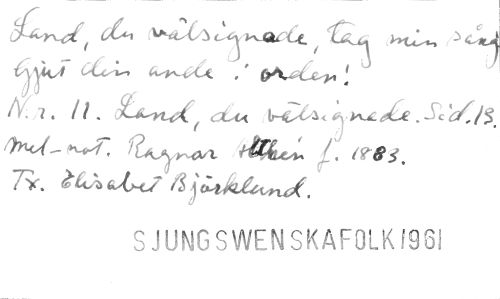 Land, du välsignade, tag min sång
Gjut din ande i orden!
N.r. 11. Land, du välsignade. Sid. 19.
Mel-not. Ragnar Althén f. 1883.
Tx. Elisabet Björklund.
SJUNGSWENSKAFOLK1961